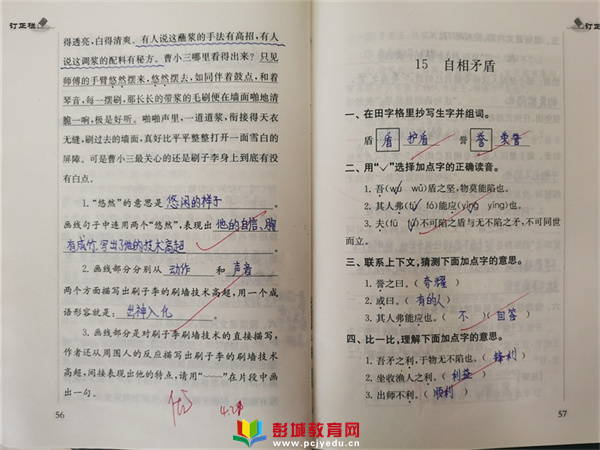 订正栏
得透亮，白得清爽。有人说这蘸浆的手法有高招，有人
说这调浆的配料有秘方。曹小三哪里看得出来？只见
师傅的手臂悠然摆来，悠然摆去，如同伴着鼓点，和着
琴音，每一摆刷，那长长的带浆的毛刷便在墙面啪地清
脆一响，极是好听。啪啪声里，一道道浆，衔接得天衣
无缝，刷过去的墙面，真好比平平整整打开一面雪白的
屏障。可是曹小三最关心的还是刷子李身上到底有没
有白点。
1.“悠然”的意思是 悠闲的样子 。
画线句子中连用两个“悠然”，表现出 他的自信、胸
有成竹，写出了他的技术高超 。
2. 画线部分分别从 动作 和 声音
两个方面描写出刷子李的刷墙技术高超，用一个成
语形容就是： 出神入化 。
3. 画线部分是对刷子李刷墙技术的直接描写，
作者还从周围人的反应描写出了刷子李的刷墙技术
高超，间接表现出他的特点，请用“﹏﹏”在片段中画
出一句。
56
优 4.29
订正
15 自相矛盾
一、在田字格里抄写生字并组词。
盾 盾 护盾 誉 誉 荣誉
二、用“✓”选择加点字的正确读音。
1. 吾(wú wǔ)盾之坚，物莫能陷也。
2. 其人弗(fú fó)能应(yìng yīng)也。
3. 夫(fū fú)不可陷之盾与无不陷之矛，不可同世
而立。
三、联系上下文，猜测下面加点字的意思。
1. 誉之曰。（ 夸耀 ）
2. 或曰。（ 有的人 ）
3. 其人弗能应也。（ 不 ）（ 回答 ）
四、比一比，理解下面加点字的意思。
1. 吾矛之利，于物无不陷也。（ 锋利 ）
2. 坐收渔人之利。（ 利益 ）
3. 出师不利。（ 顺利 ）
57
彭城教育网
www.pcjyedu.cn